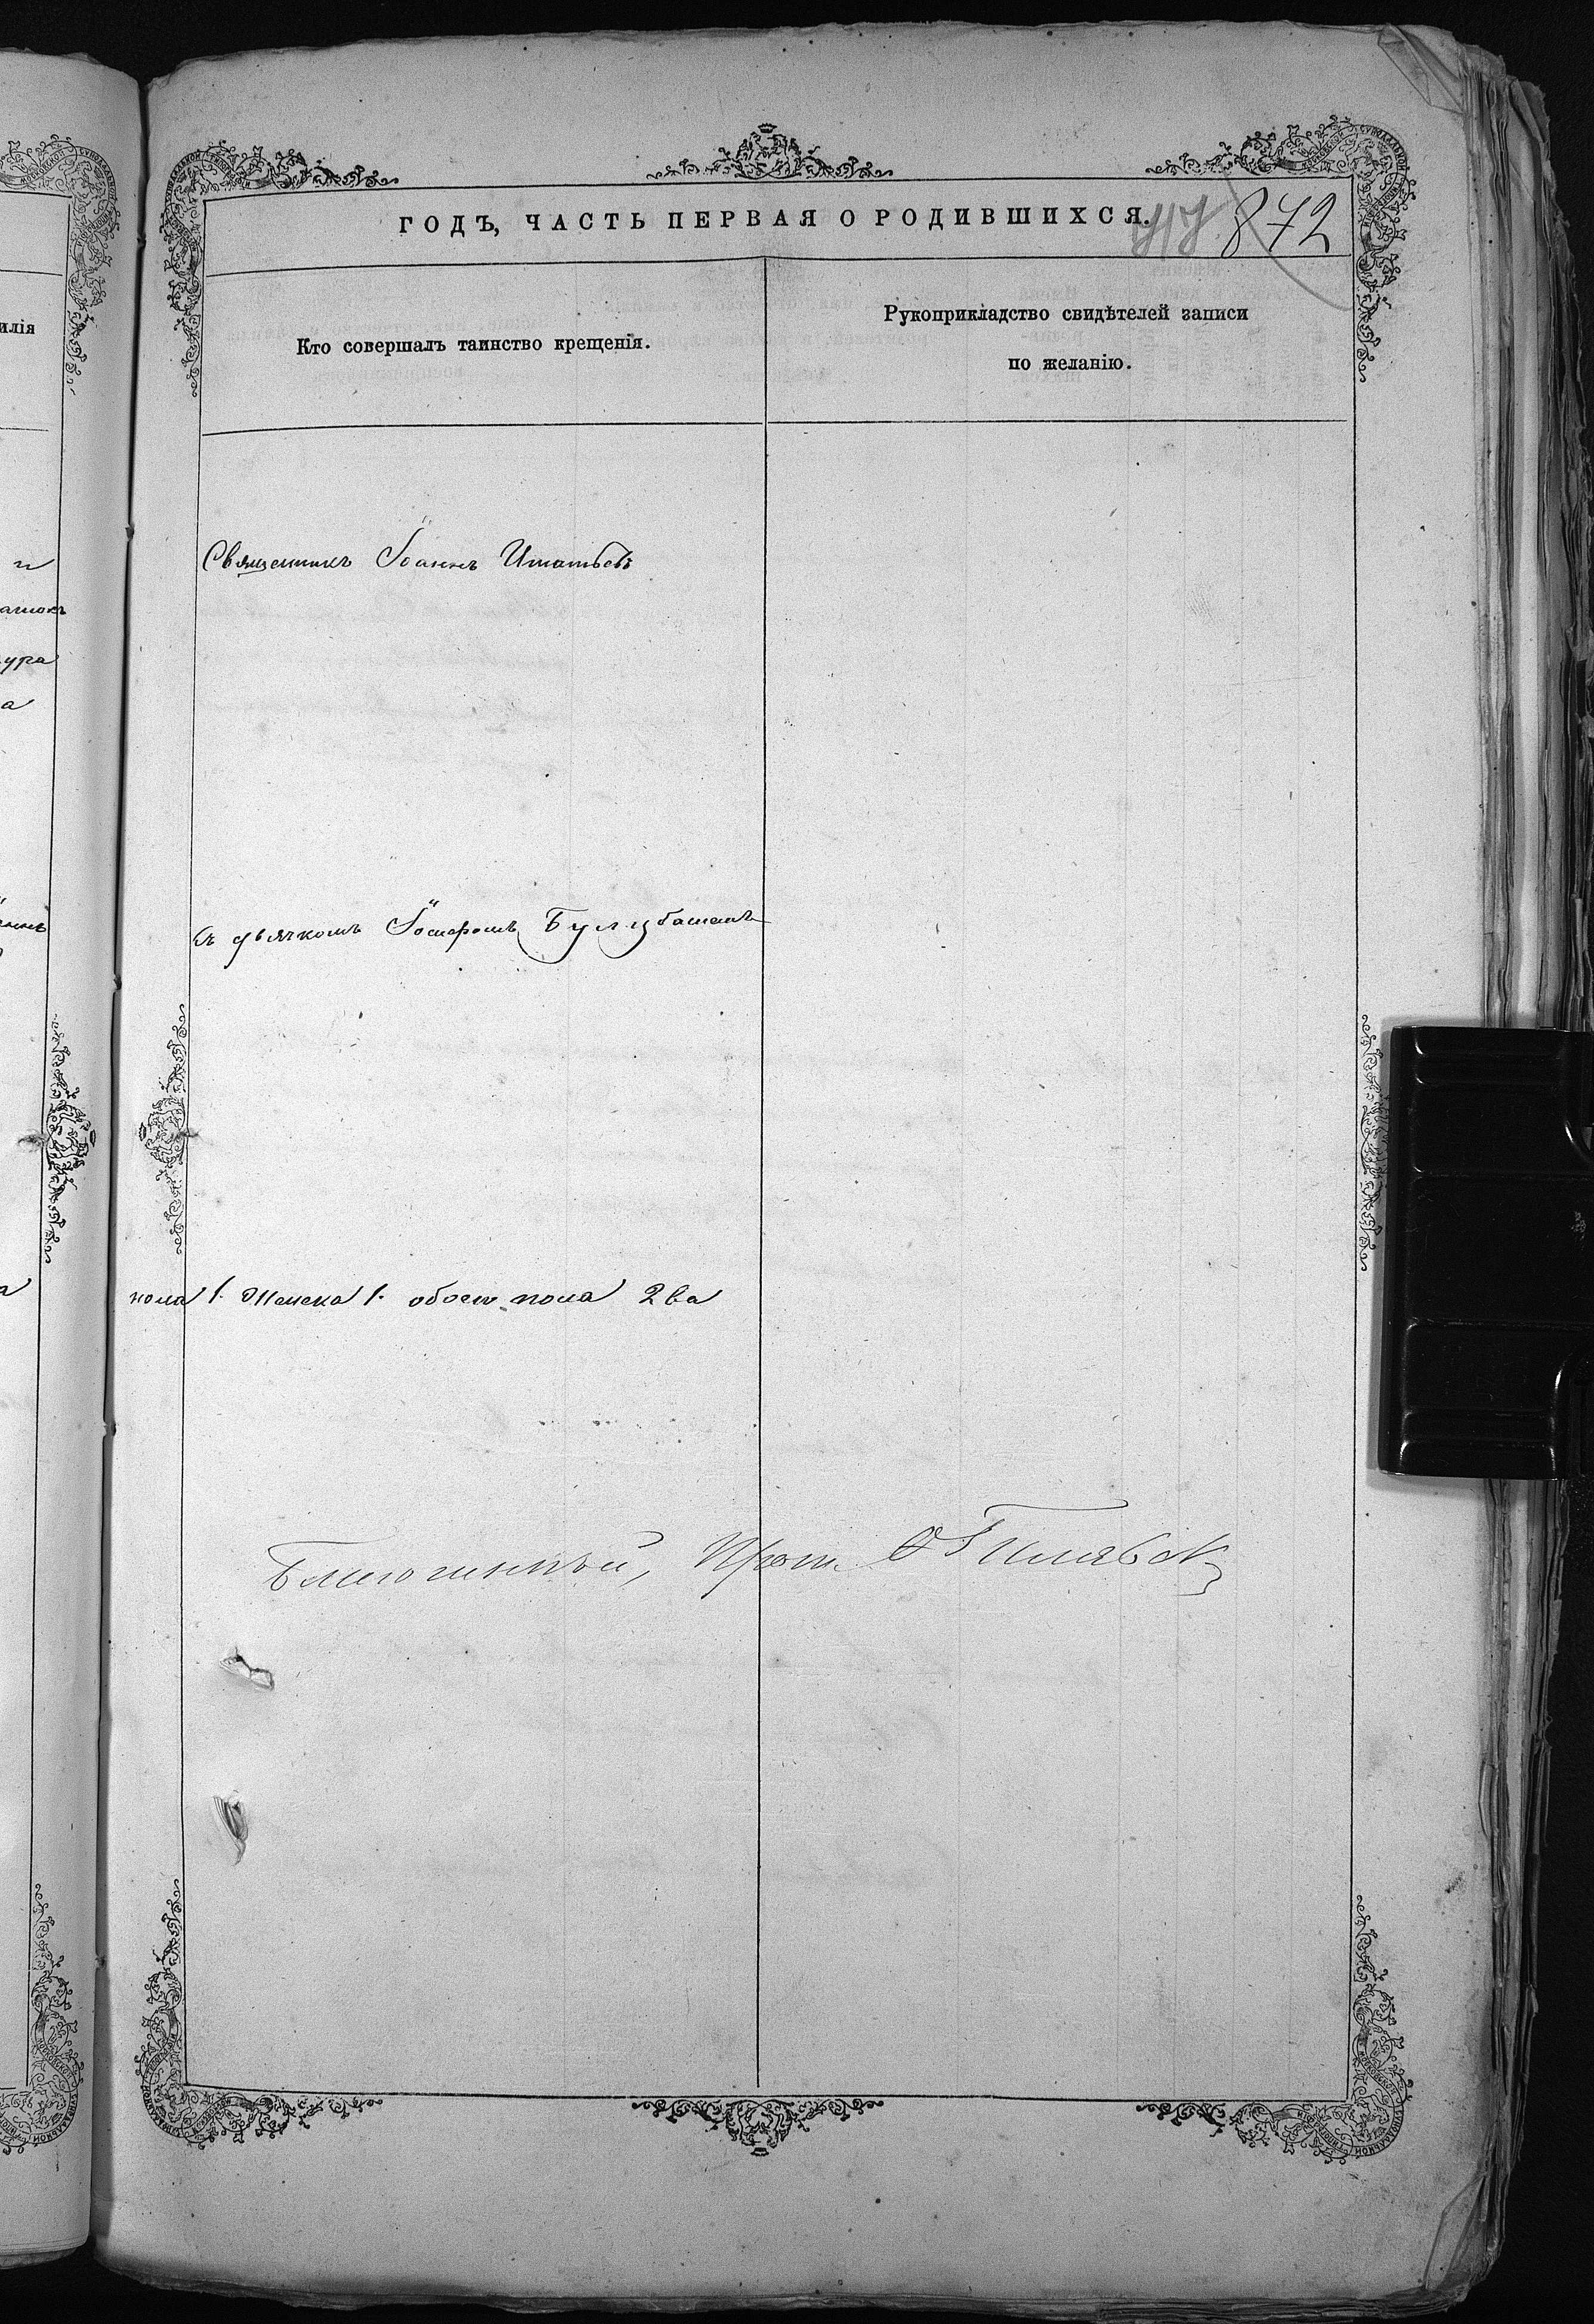 ГОДЪ, ЧАСТЬ ПЕРВАЯ О РОДИВШИХСЯ.
872
илія
Кто совершалъ таинство крещенія.
Рукоприкладство свидѣтелей записи
по желанію.
Священникъ Іоаннъ Игнатьевъ
и
ура
а
съ дьячкомъ Іосифомъ
пола 1. женска 1. обоего пола 2ва
Благочинный, Прот.